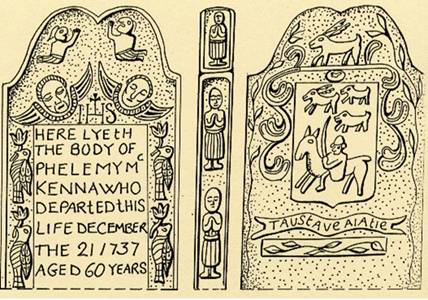 IHS
HERE LYETH
THE BODY OF
PHELEMY Mc
KENNA WHO
DEPARTED THIS
LIFE DECEMBER
THE 21 1737
AGED 60 YEARS
TAUSTAVE AIATIE